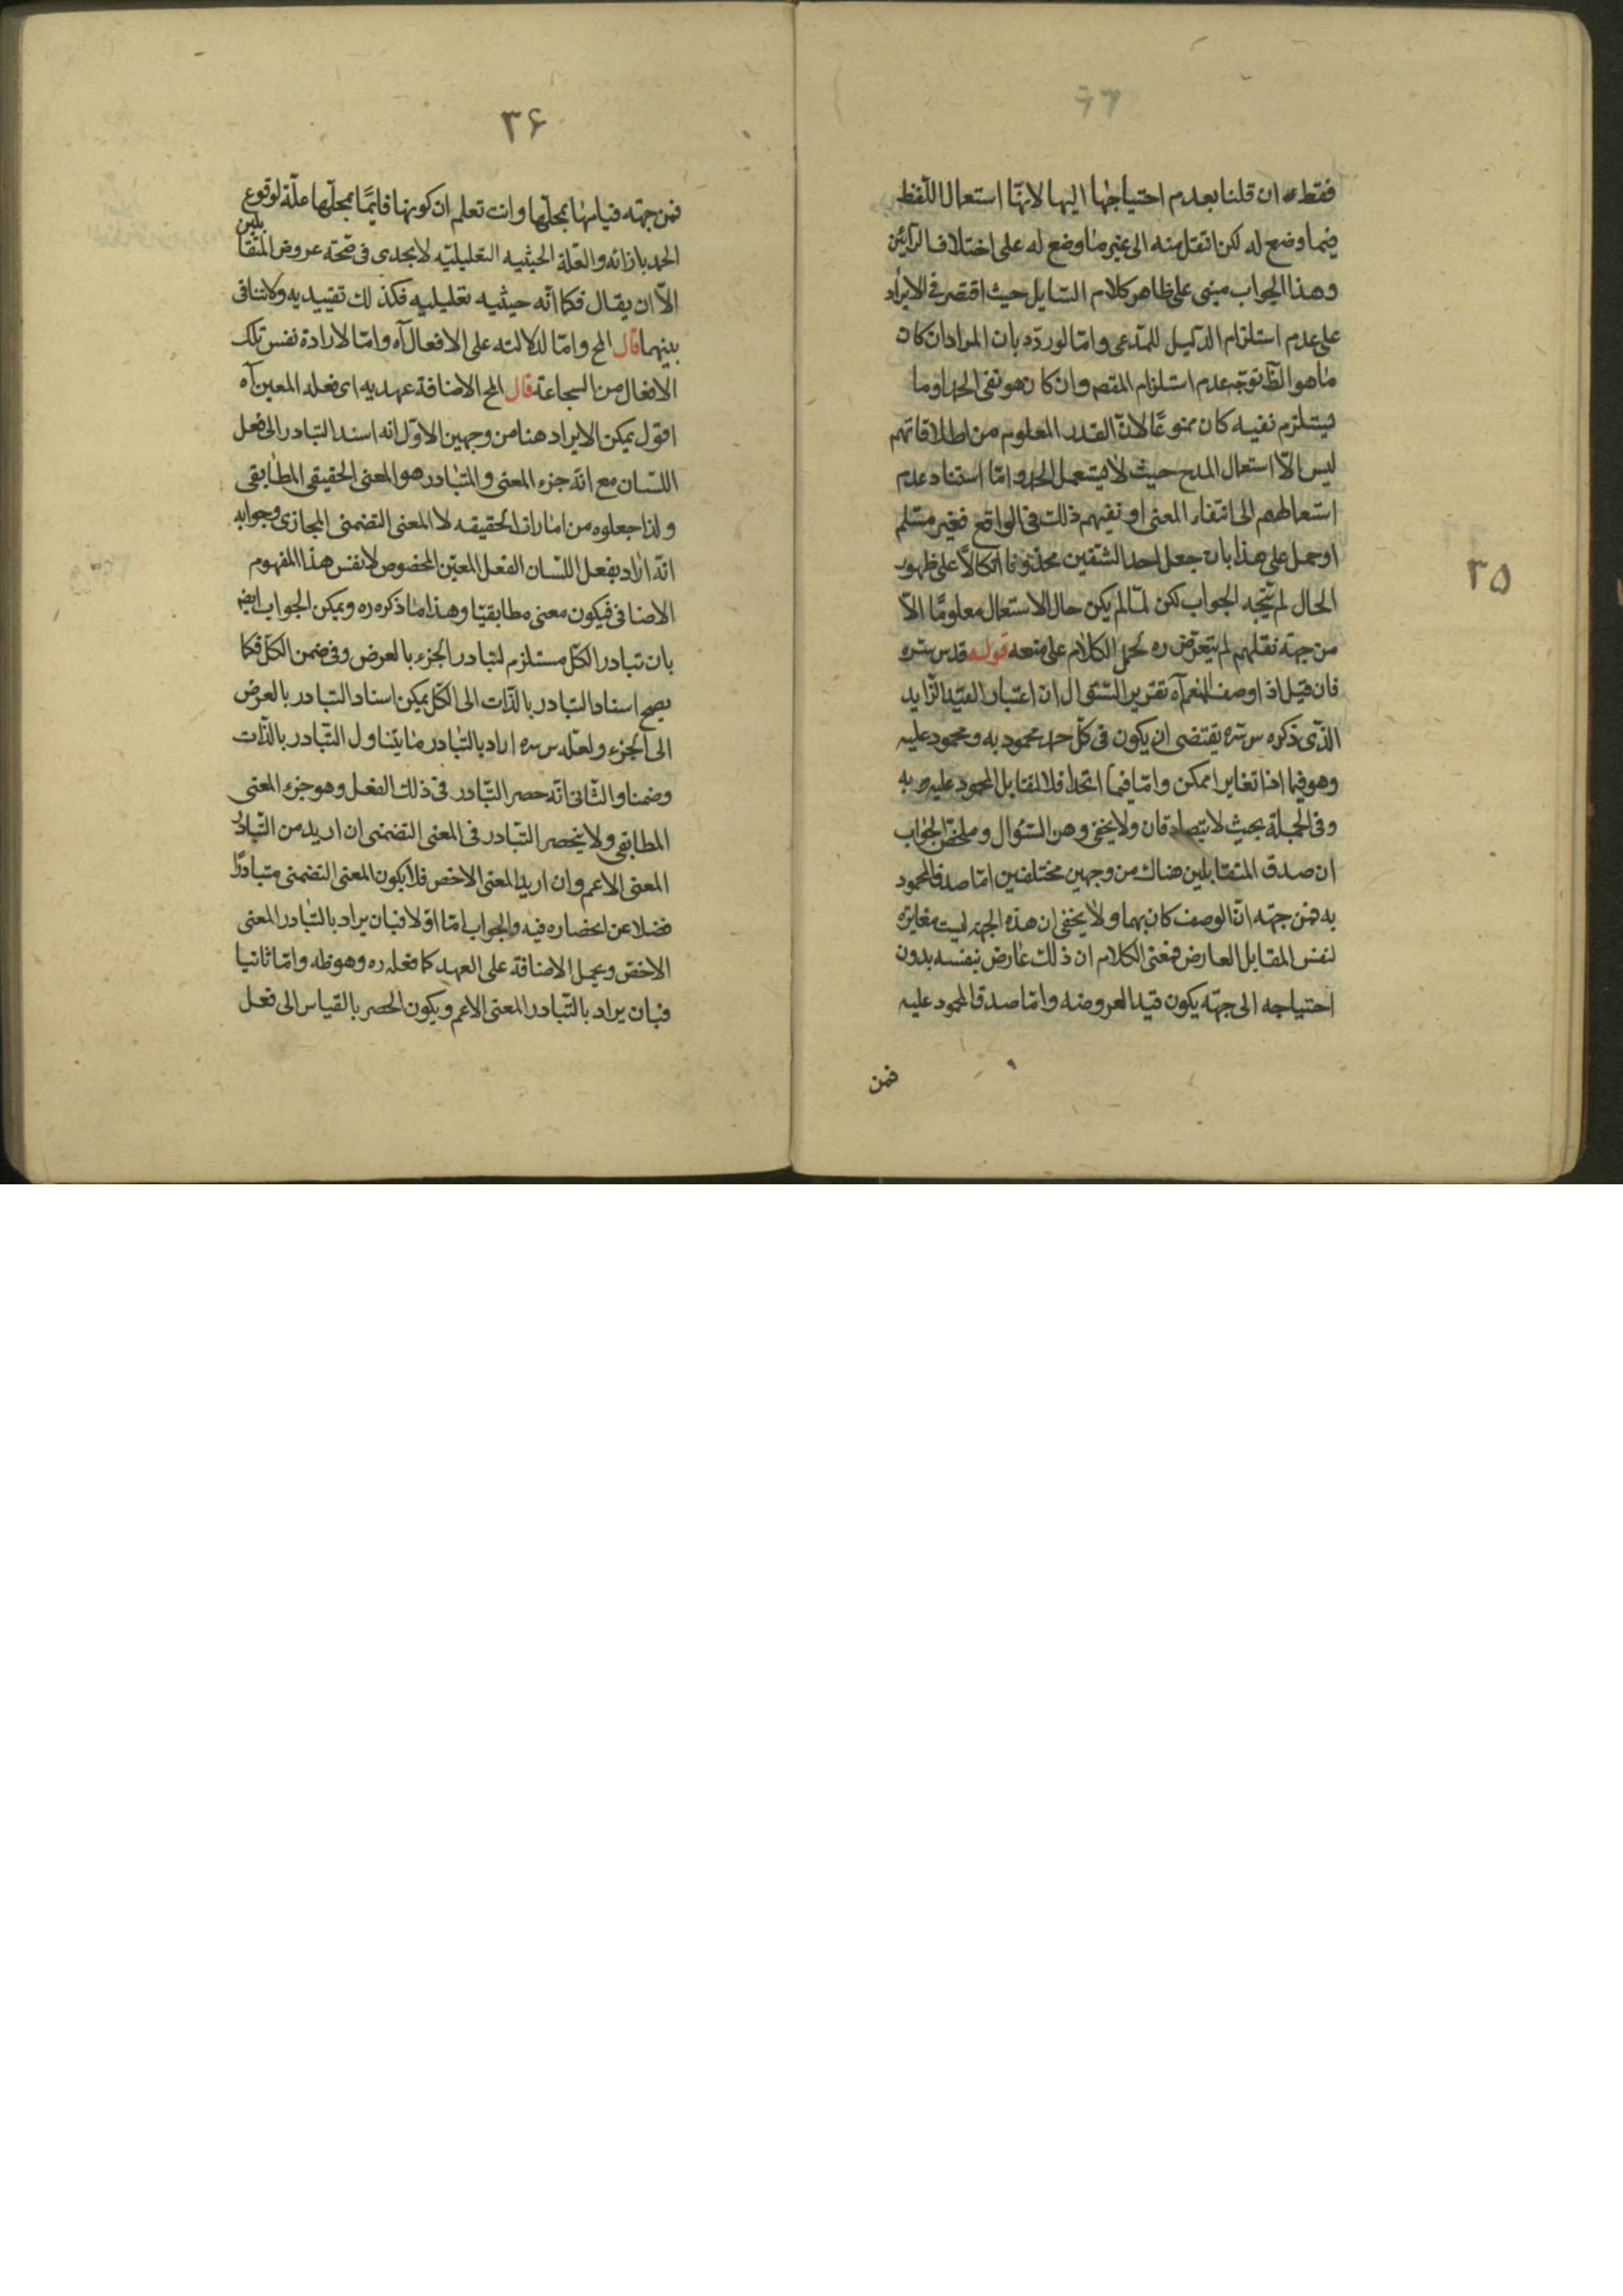 فقط ان قلنا بعدم احتياجها اليها لانها استعمال اللفظ
فيما وضع له لكن انتقل منه الى غير ما وضع له على اختلاف الرأيين
وهذا الجواب مبنى على ظاهر كلام السايل حيث اقتصر فى الايراد
على عدم استلزام الدليل للمدعى وامّا لو ردّه بان المراد ان كان
ما هو الظ توجّه عدم استلزام المقصر وان كان هو نفى الحمد او ما
يستلزم نفيه كان ممنوعًا لانّ القدر المعلوم من اطلاقاتهم
ليس الّا استعمال المدح حيث لا يستعمل الحمد وامّا استناد عدم
استعمالهم الى انتفاء المعنى او نفيهم ذلك فى الواقع فغير مسّلم
او حمل على هذا بان جعل احد الشقين محذوفا اتكالًا على ظهور
الحال لم يتّجه الجواب لكن لمّا لم يكن حال الاستعمال معلومًا الّا
من جهة نقلهم لم يتعرّض ره لحمل الكلام على منعه قوله قدس سره
فان قيل اذا وصف المنعم آه تقرير السّئوال ان اعتبار القيد الزايد
الذّى ذكره س سره يقتضى ان يكون فى كلّ حمد محمود به ومحمود عليه
وهو فيما اذا تغايرا ممكن وامّا فيما اتحدا فلا لتقابل المحمود عليه وبه
وفى الجملة بحيث لا يتصادقان ولا يخفى وهن السئوال وملخّص الجواب
ان صدق المتقابلين هناك من وجهين مختلفين امّا صدق المحمود
به فمن جهة انّ الوصف كان بهما ولا يخفى ان هذه الجهة ليست مغايرة
لنفس المقابل العارض فمعنى الكلام ان ذلك عارض بنفسه بدون
احتياجه الى جهّة يكون قيدا لعروضه وامّا صدق المحمود عليه
فمن
٣٥
٣۶
فمن جهته قيامها بمحلّها وانت تعلم ان كونها قايمًا بمحلّها علّة لوقوع
الحمد بازائه والعلّة الحيثيه التعليليّه لا يجدى فى صحّة عروض المتقا
بلين
الاّ ان يقال فكما انّه حيثيه تعليليه فكذلك تقييديه ولا تنافى
بينهما قال المح وامّا لدلالته على الافعال آه وامّا لارادة نفس تلك
الافعال من الشجاعة قال المح الاضافة عهديه اى فعله المعين آه
اقول يمكن الايراد هنا من وجهين الاوّل انه اسند التبادر الى فعل
اللسّان مع انّه جزء المعنى والمتبادر هو المعنى الحقيقى المطابقى
ولذا جعلوه من امارات الحقيقه لا المعنى التضمنى المجازى وجوابه
انّه اراد بفعل اللسّان الفعل المعيّن المخصوص لا نفس هذا المفهوم
الاضافى فيكون معنى مطابقيّا وهذا ما ذكره ره ويمكن الجواب ايضه
بان تبادر الكلّ مستلزم لتبادر الجزء بالعرض وفى ضمن الكلّ فكما
يصح اسناد التبادر بالذّات الى الكلّ يمكن اسناد التبادر بالعرض
الى الجزء ولعلّه س سره اراد بالتّبادر ما يتناول التّبادر بالذّات
وضمنا والثّانى انّه حصر التّبادر فى ذلك الفعل وهو جزء المعنى
المطابقى ولا ينحصر التّبادر فى المعنى التضمنى ان اريد من التّبادر
المعنى الاعم وان اريد المعنى الاخص فلا يكون المعنى التضمنى متبادرًا
فضلا عن انحصاره فيه والجواب امّا اوّلا فبان يراد بالتّبادر المعنى
الاخصّ ويحمل الاضافة على العهد كما فعله ره وهو ظه وامّا ثانيا
فبان يراد بالتّبادر المعنى الاعم ويكون الحصر بالقياس الى فعل